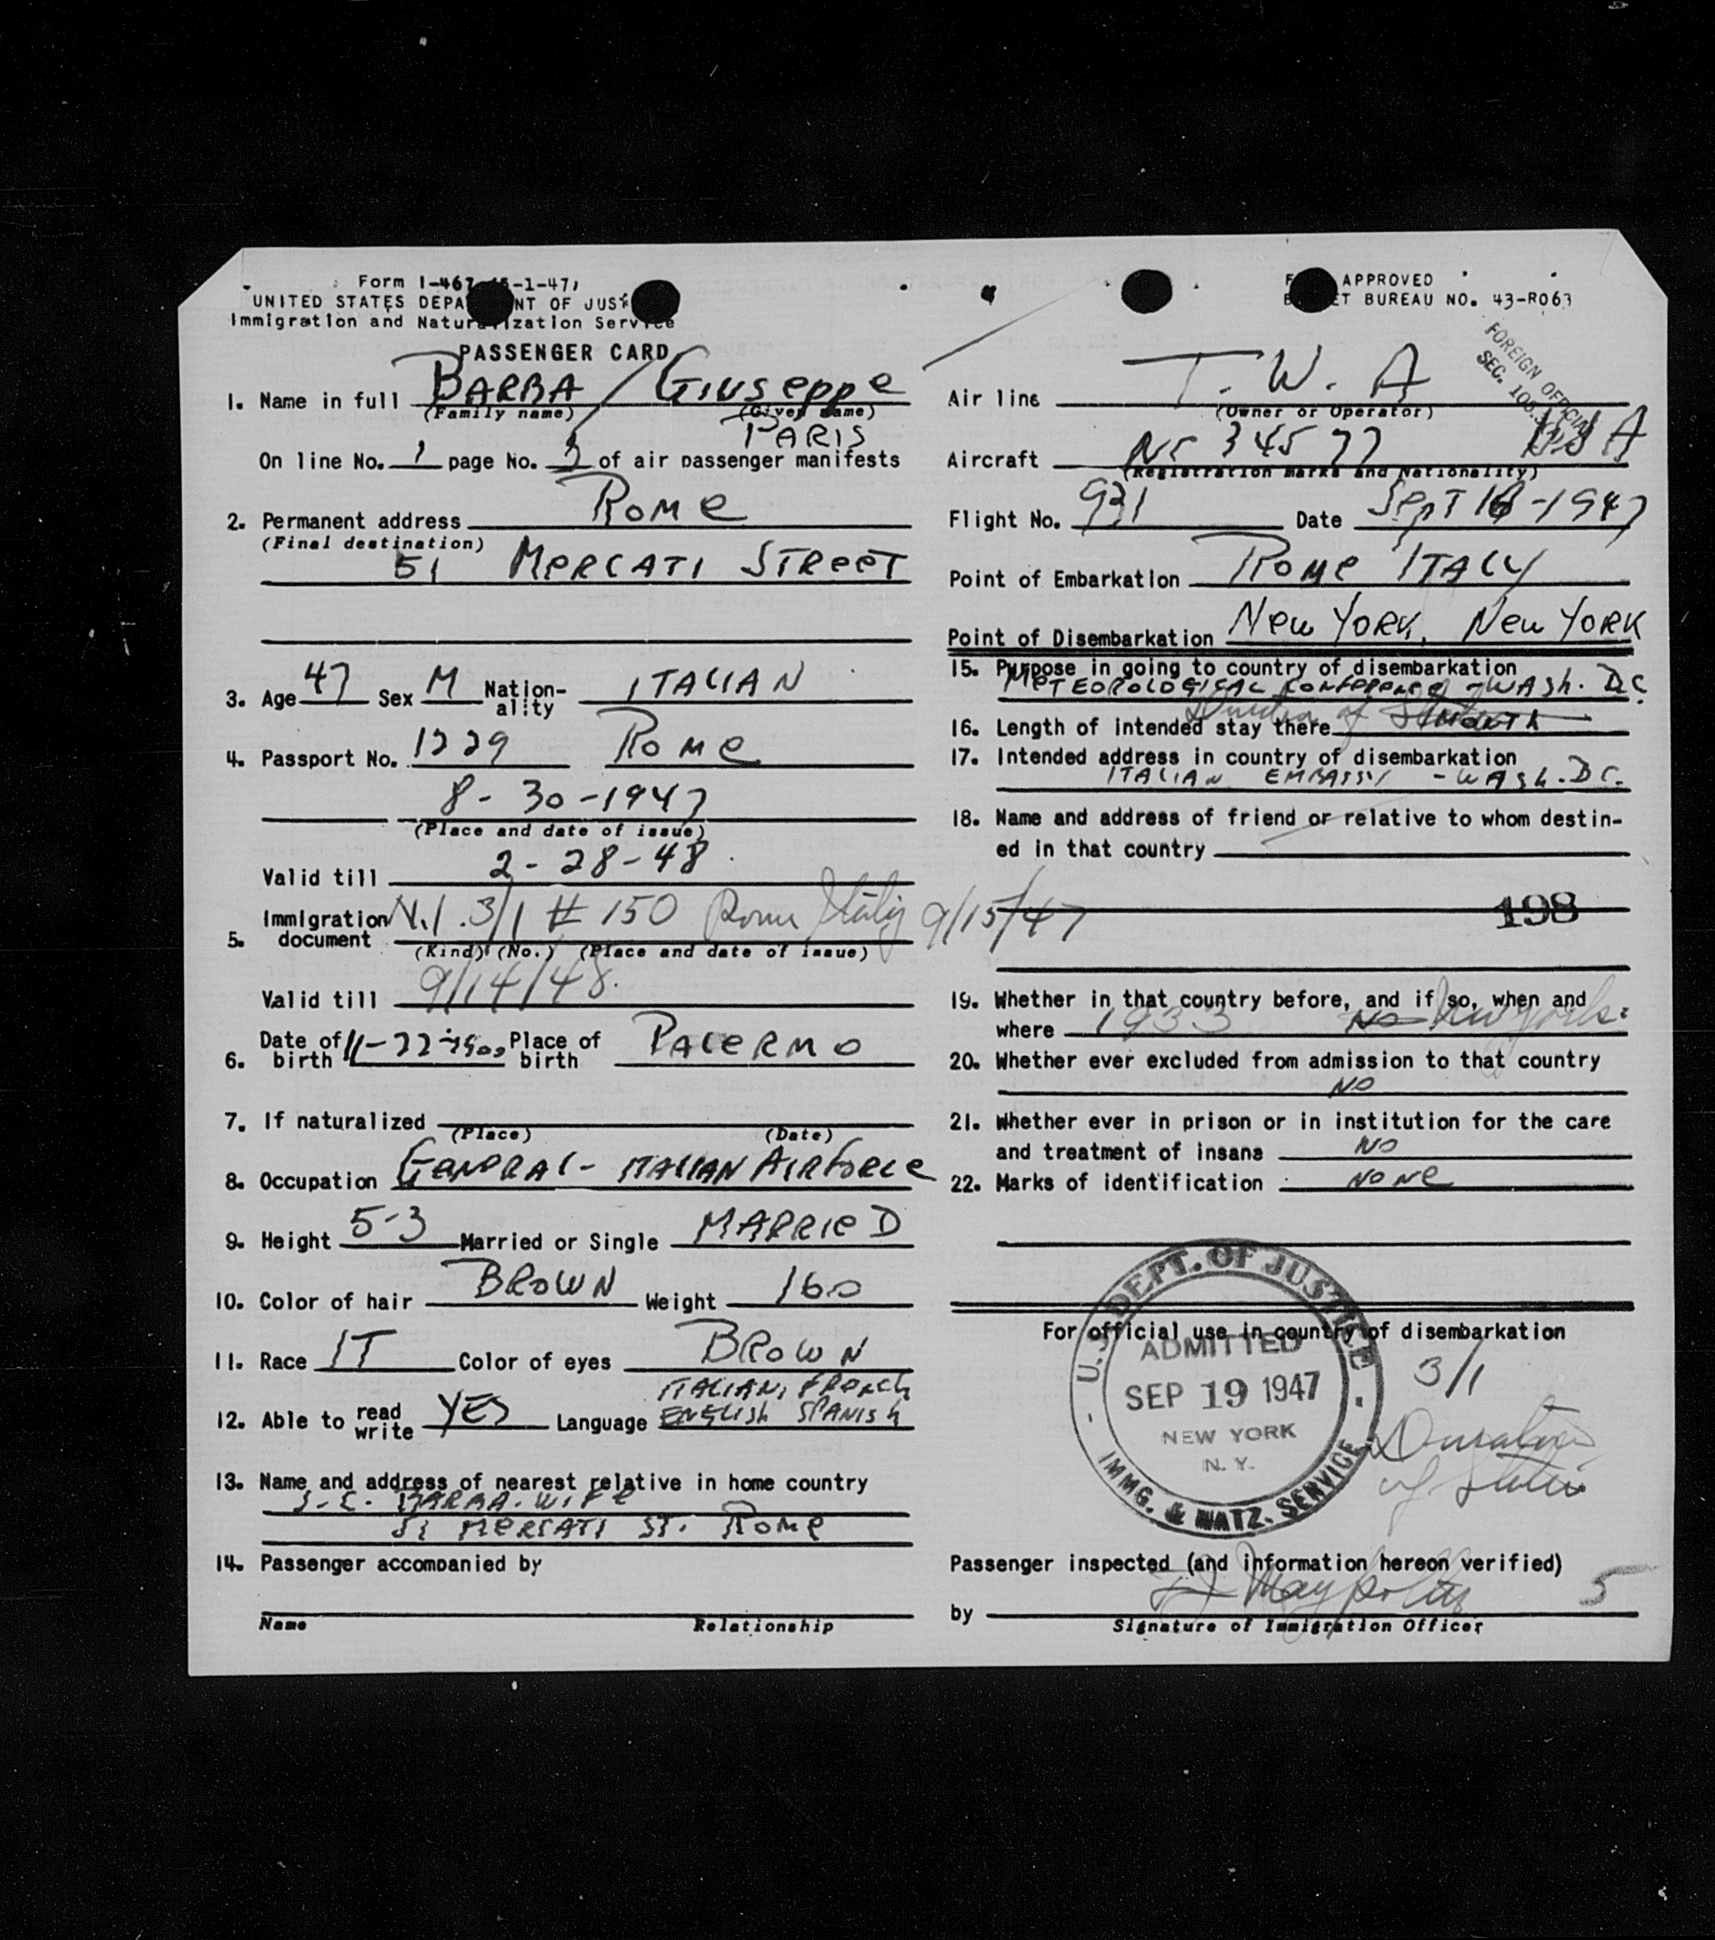 Form I-467 -1-47)
UNITED STATES DEPA NT OF JUS
Immigration and Naturalization Service
PASSENGER CARD
1. Name in full BARBA / GIUSEPPE
(Family name) (Given name)
PARIS
On line No. 1 page No. of air passenger manifests
2. Permanent address ROME
(Final destination)
51 MERCATI STREET
3. Age 47 Sex M Nation-ality ITALIAN
4. Passport No. 1229 ROME
8-30-1947
(Place and date of issue)
Valid till 2-28-48
5. Immigration document N.I. 3/1 # 150 Rome Italy 9/15/47
(Kind) (No.) (Place and date of issue)
Valid till 9/14/48.
6. Date of birth 11-22-1900 Place of birth PALERMO
7. If naturalized
(Place) (Date)
8. Occupation GENERAL - ITALIAN AIRFORCE
9. Height 5-3 Married or Single MARRIED
10. Color of hair BROWN Weight 160
11. Race IT Color of eyes BROWN
ITALIAN, FRENCH
12. Able to read write YES Language ENGLISH SPANISH
13. Name and address of nearest relative in home country
BARBA. WIFE
51 MERCATI ST. ROME
14. Passenger accompanied by
Name Relationship
APPROVED
ET BUREAU NO. 43-R063
FOREIGN OFFICIAL
SEC.
Air line T.W.A
(Owner or Operator)
Aircraft NC 34577 USA
(Registration marks and Nationality)
Flight No. 931 Date SEPT -1947
Point of Embarkation ROME ITALY
Point of Disembarkation NEW YORK, NEW YORK
15. Purpose in going to country of disembarkation
METEOROLOGICAL CONFERENCE - WASH. D.C.
Duration of Status
16. Length of intended stay there 1 MONTH
17. Intended address in country of disembarkation
ITALIAN EMBASSY - WASH. D.C.
18. Name and address of friend or relative to whom destin-
ed in that country
198
19. Whether in that country before, and if so, when and
where 1933 NO New York
20. Whether ever excluded from admission to that country
NO
21. Whether ever in prison or in institution for the care
and treatment of insane NO
22. Marks of identification NONE
For official use in country of disembarkation
U.S. DEPT. OF JUSTICE
ADMITTED
SEP 19 1947
NEW YORK
N. Y.
IMMG. & NATZ. SERVICE
3/1
Duration
of Status
Passenger inspected (and information hereon verified)
by 5
Signature of Immigration Officer